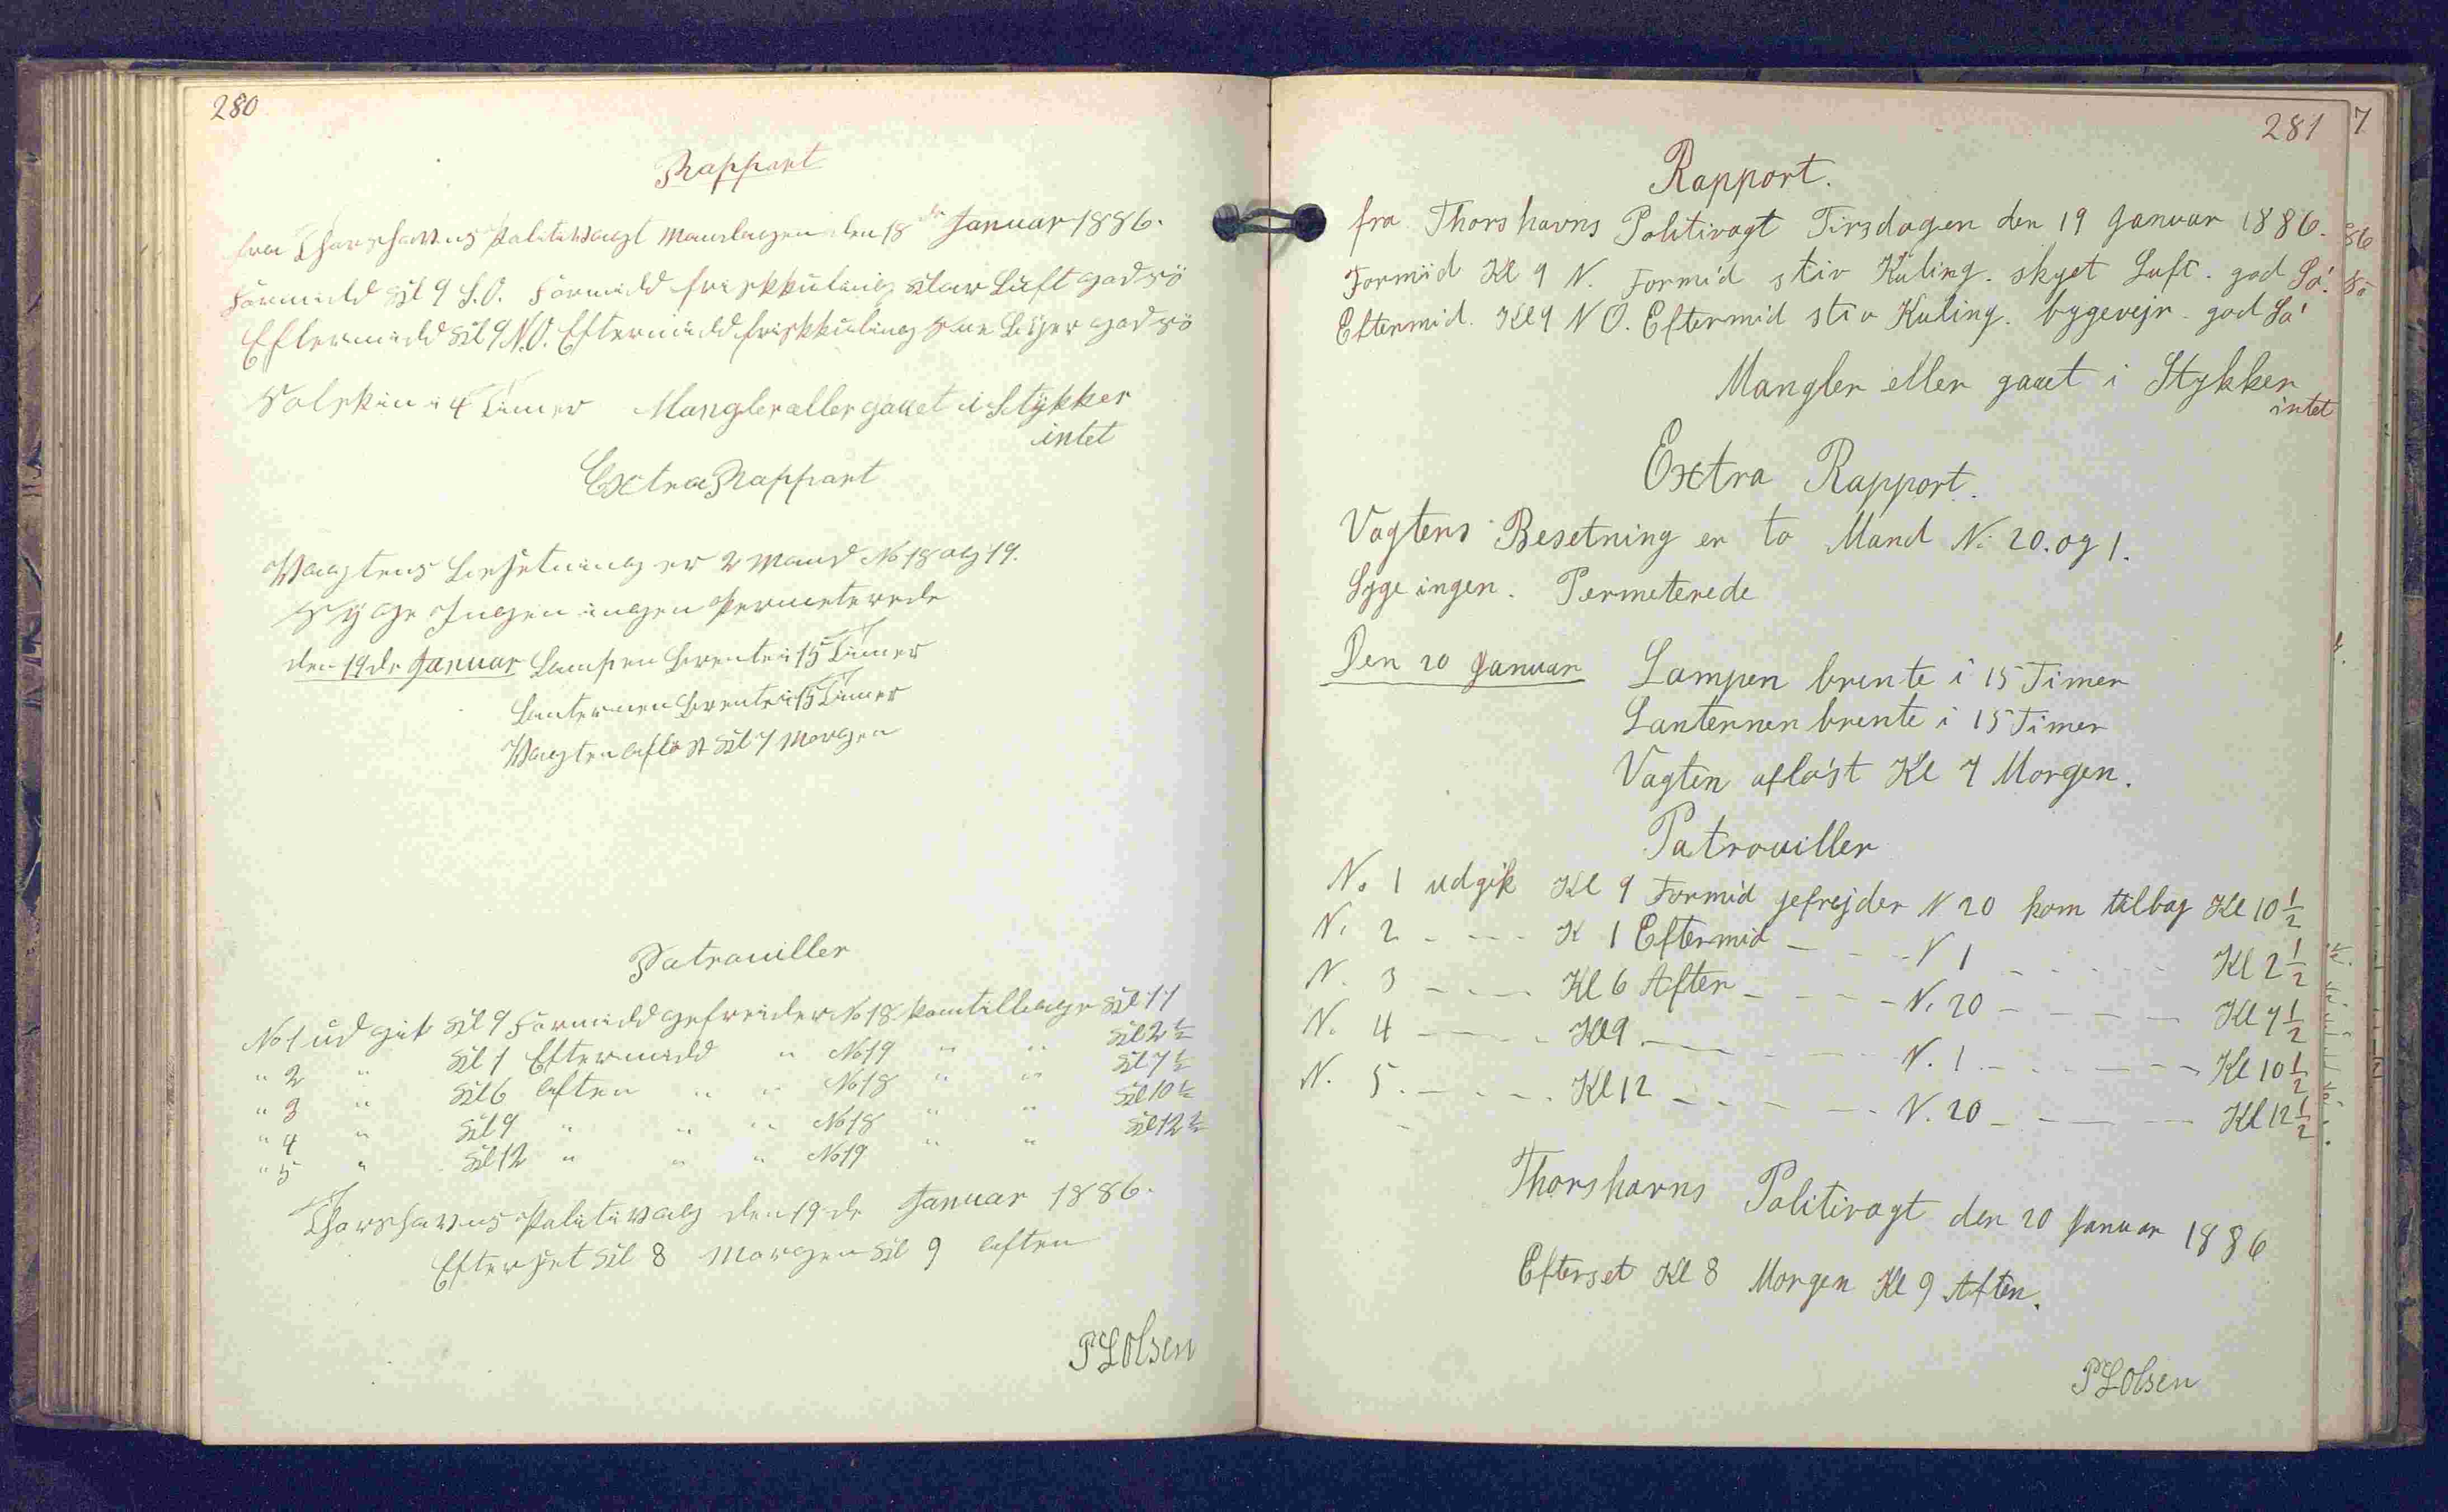 280
Rapport
fra Thorshavns Politivagt Mandagen den 18de Januar 1886.
Formidd Kl 9 S.O. Formidd friskkuling klar Luft god Sö
Eftermidd Kl 9 N.O. Eftermidd friskkuling Sne Byger god Sö
Solskin i 4 Timer Mangler eller gaaet i Stykker
intet
Extra Rapport
Vagtens Besetning er 2 Mand No 18 og 19.
Syge Ingen ingen Permeterede
den 19de Januar Lampen brente i 15 Timer
Lanternen brente i 15 Timer
Vagten aflöst Kl 7 Morgen
Patrouiller
No 1 udgik Kl 9 Formidd gefreider No 18 kom tillbage Kl 11
" 2 " Kl 1 Eftermidd " No 19 " " Kl 2 1/2
" 3 " Kl 6 aften " " No 18 " " Kl 7 1/2
" 4 " Kl 9 " " " No 18 " " Kl 10 1/2
" 5 " Kl 12 " " " No 19 " " Kl 12 1/2
Thorshavns Politivag den 19de Januar 1886.
Efterset Kl 8 Morgen Kl 9 aften
P L Olsen
281
Rapport.
fra Thorshavns Politivagt Tirsdagen den 19 Januar 1886.
Formid Kl 9 N. Formid stiv Kuling. skyet Luft. god Sö.
Eftermid. Kl 9 N O. Eftermid stiv Kuling. bygevejr. god Sö
Mangler eller gaaet i Stykker
intet
Extra Rapport.
Vagtens Besetning er to Mand N. 20. og 1.
Syge ingen. Permeterede
Den 20 Januar Lampen brente i 15 Timer
Lanternen brente i 15 Timer
Vagten aflöst Kl 7 Morgen.
Patrouiller
No 1 udgik Kl 9 Formid gefrejder N 20 kom tilbag Kl 10 1/2
N. 2 - - - - K 1 Eftermid - - - - N 1 - - - - - Kl 2 1/2
N. 3 - - - - Kl 6 Aften - - - - - N. 20 - - - - - Kl 7 1/2
N. 4 - - - - Kl 9. - - - - - - N. 1. - - - - - Kl 10 1/2
N. 5. - - - - Kl 12 - - - - - - N. 20 - - - - - Kl 12 1/2
Thorshavns Politivagt den 20 Januar 1886
Efterset Kl 8 Morgen Kl 9 Aften.
P L Olsen
7